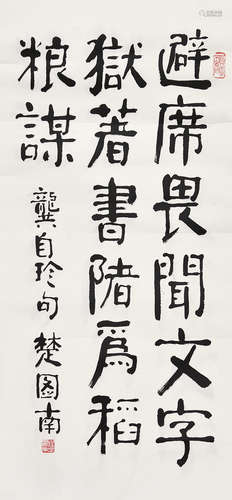 避席畏聞文字
獄著書陼爲稻
粮謀
龔自珍句 楚图南